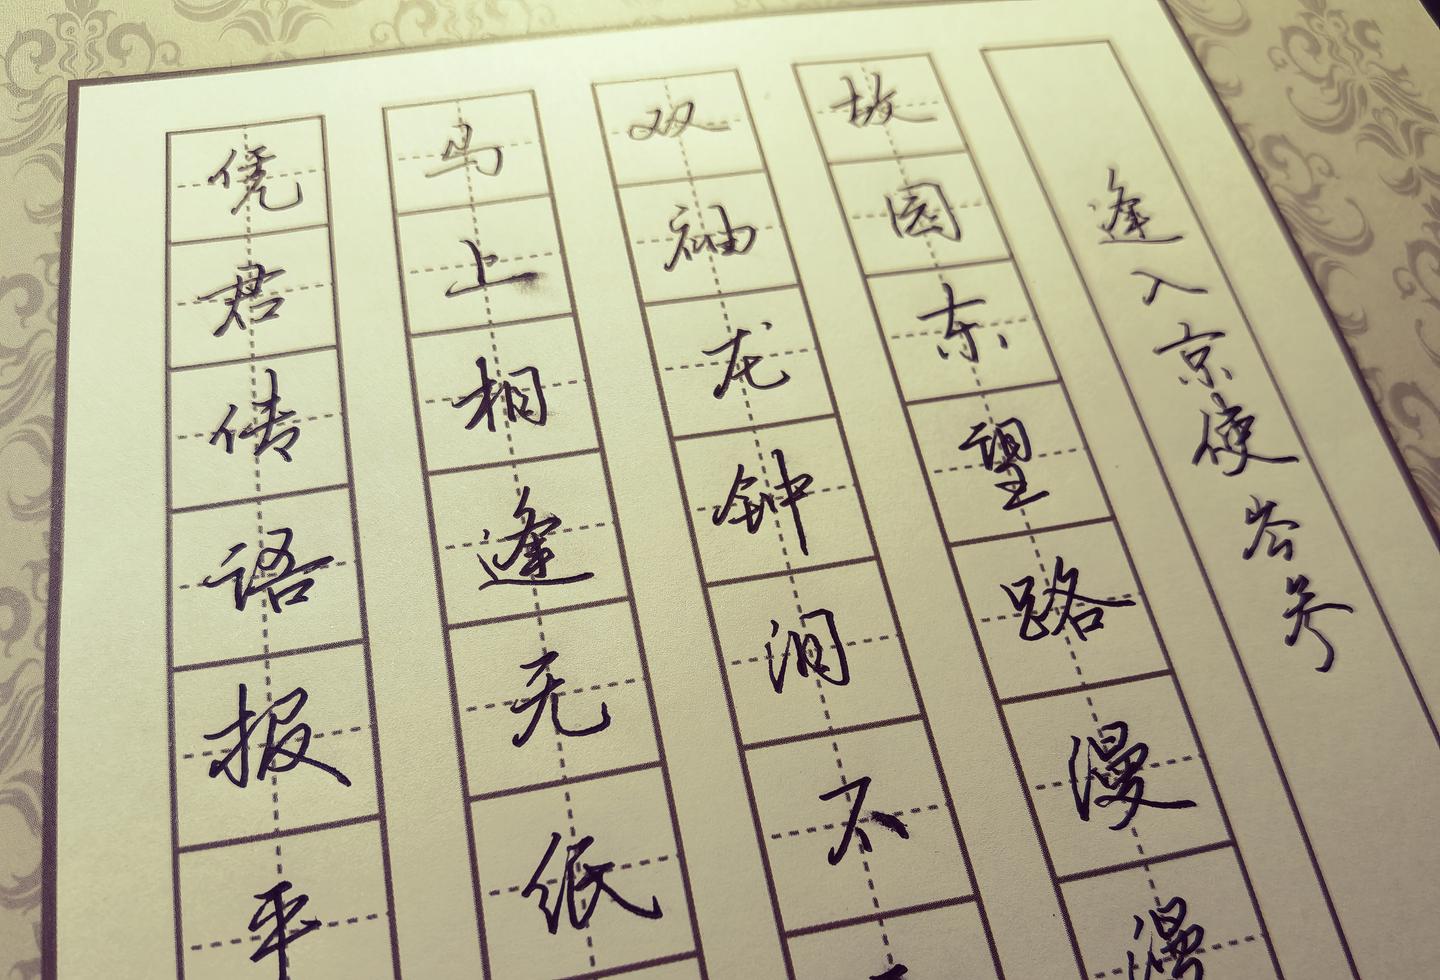 逢入京使岑参
故园东望路漫漫
双袖龙钟泪不
马上相逢无纸
凭君传语报平